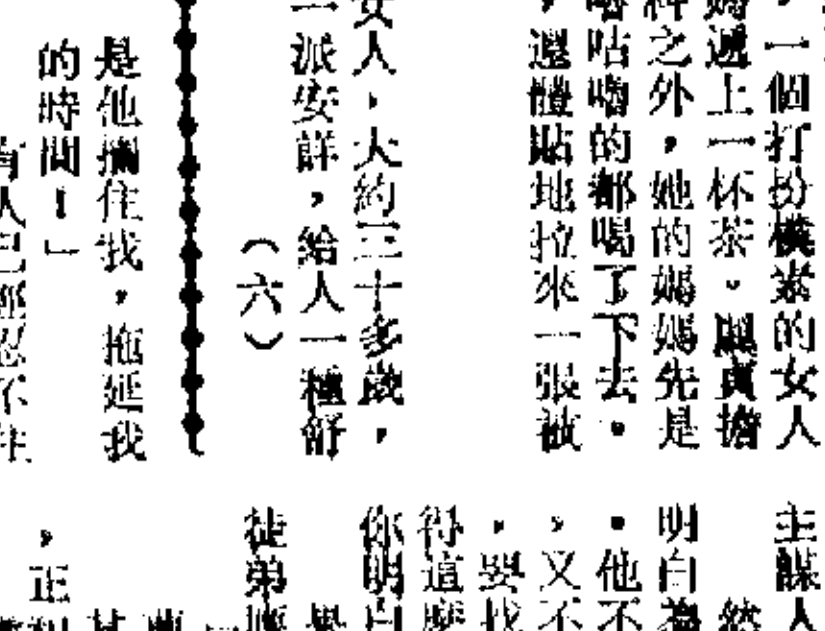 ，一個打扮樸素的女人
媽遞上一杯茶。麗貞擔
料之外，她的媽媽先是
嚕咕嚕的都喝了下去。
，還體貼地拉來一張被
女人，大約三十多歲，
一派安詳，給人一種舒
（六）
是他攔住我，拖延我
的時間！」
有人已經忍不住
主謀人
然
明白為
。他不
，又不
，要找
得這麼
你明白
是
徒弟應
，正和